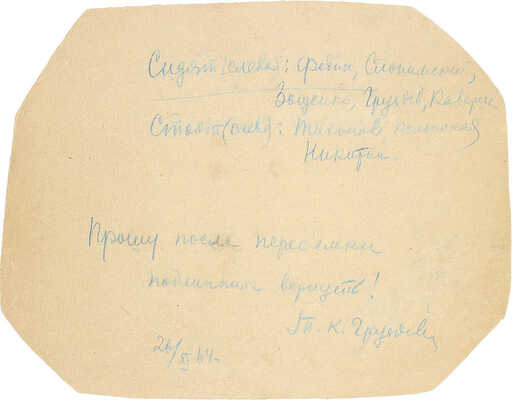 Сидят (слева): Федин, Слонимский,
Зощенко, Груздев, Каверин
Стоят (слев): Тихонов Полонская
Никитин.
Прошу после пересъемки
подлинник вернуть!
Т. К. Груздева
26/XI 64 г.